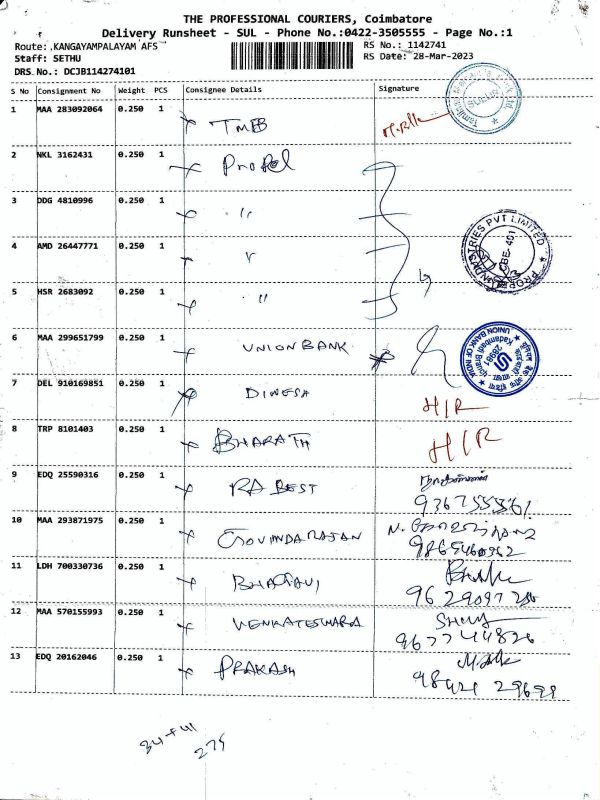 THE PROFESSIONAL COURIERS, Coimbatore
Delivery Runsheet - SUL - Phone No.:0422-3505555 - Page No.:1
Route: .KANGAYAMPALAYAM AFS
RS No.: 1142741
Staff: SETHU
RS Date: 28-Mar-2023
DRS No.: DCJB114274101
S No Consignment No Weight PCS Consignee Details Signature
1 MAA 283092064 0.250 1 TMB
2 NKL 3162431 0.250 1 Propel
3 DDG 4810996 0.250 1 "
4 AMD 26447771 0.250 1 "
PROPEL INDUSTRIES PVT LIMITED
CBE-401
5 HSR 2683092 0.250 1 "
6 MAA 299651799 0.250 1 UNION BANK
UNION BANK OF INDIA
Kadambadi Branch
7 DEL 910169851 0.250 1 DINESH H/R
8 TRP 8101403 0.250 1 BHARATH H/R
9 EDQ 25590316 0.250 1 RA BEST
10 MAA 293871975 0.250 1 GOVINDARAJAN
11 LDH 700330736 0.250 1
12 MAA 570155993 0.250 1 VENKATESWARA
9677744826
13 EDQ 20162046 0.250 1 PRAKASH
34+41
275